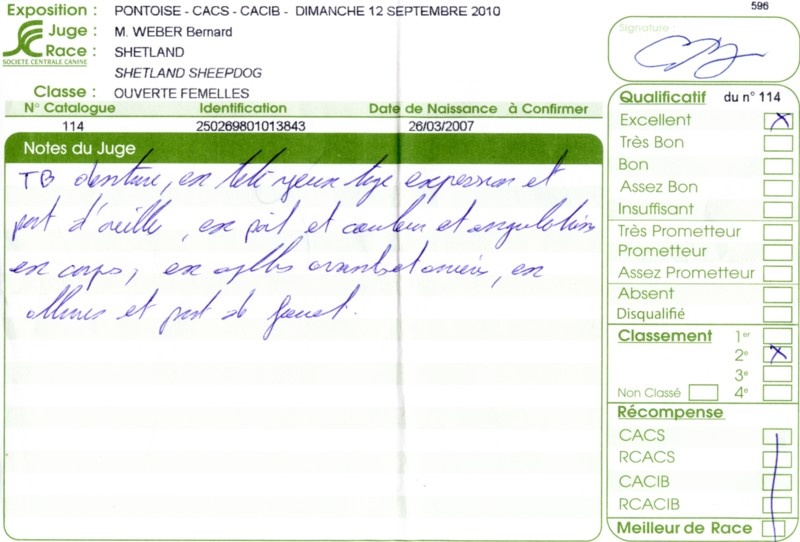 Exposition : PONTOISE - CACS - CACIB - DIMANCHE 12 SEPTEMBRE 2010
596
Juge : M. WEBER Bernard
Race : SHETLAND
SOCIETE CENTRALE CANINE
SHETLAND SHEEPDOG
Classe : OUVERTE FEMELLES
N° Catalogue Identification Date de Naissance à Confirmer
114 250269801013843 26/03/2007
Notes du Juge
TB denture, ex tête yeux expression et
port d'oreille, ex poil et couleur et angulation
ex corps, ex avant et arrière, ex
allures et port de fouet.
Signature :
Qualificatif du n° 114
Excellent X
Très Bon
Bon
Assez Bon
Insuffisant
Très Prometteur
Prometteur
Assez Prometteur
Absent
Disqualifié
Classement 1er
2e X
3e
Non Classé 4e
Récompense
CACS
RCACS
CACIB
RCACIB
Meilleur de Race